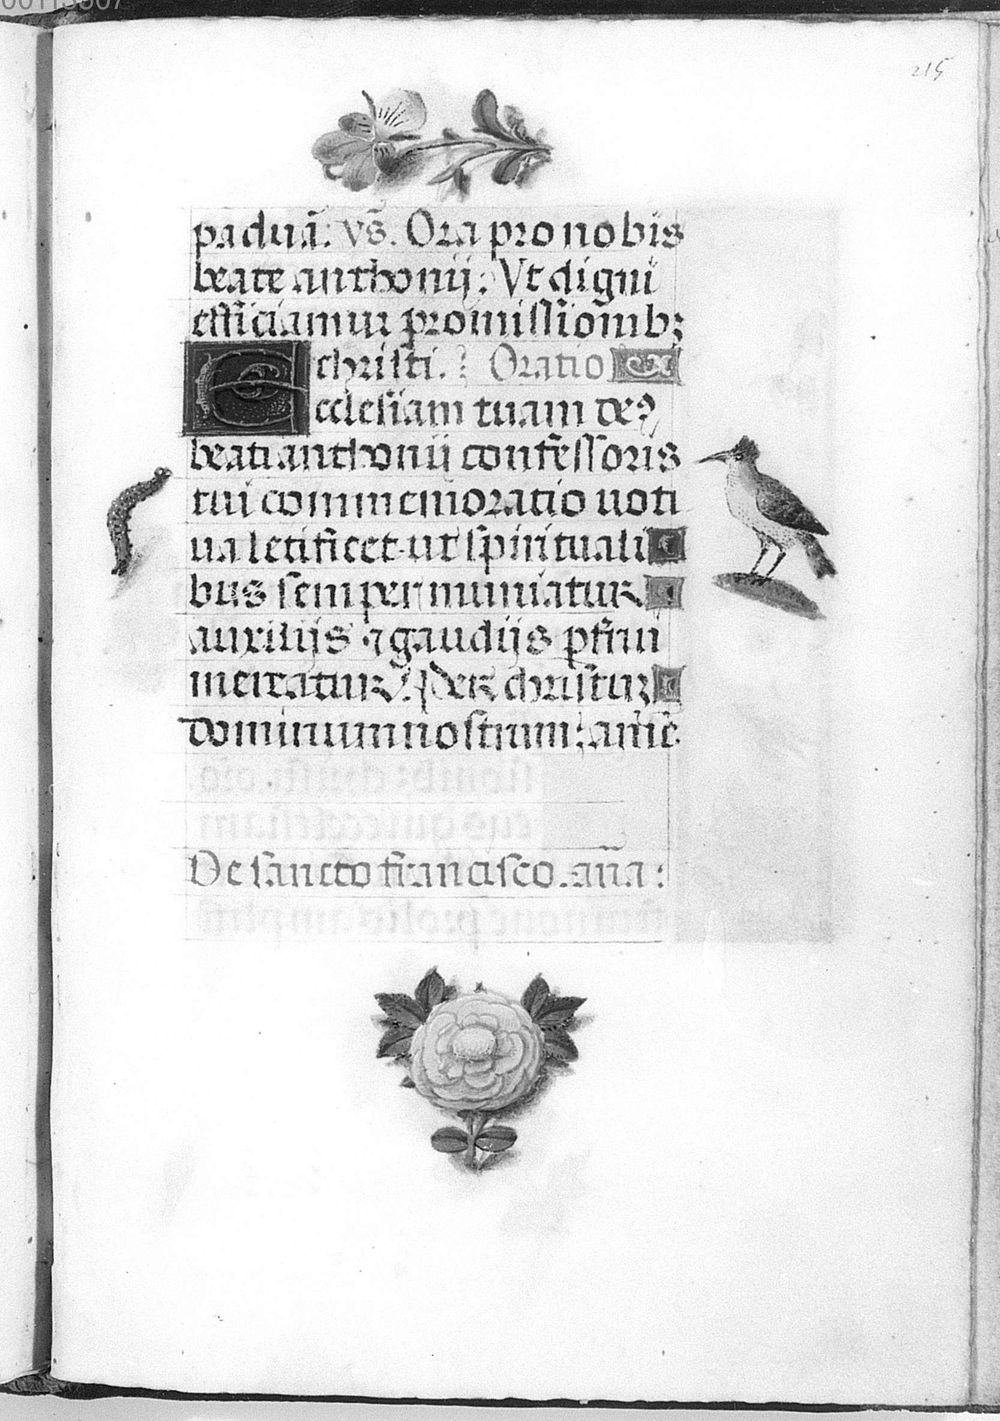 00113507
215
paduā: vs̄. Ora pro nobis
beate anthonij: Vt digni
efficiamur promissionib;
christi. Oratio
Ecclesiam tuam de9
beati anthonij confessoris
tui commemoratio uoti
ua letificet ut spirituali
bus semper muniatur
auxilijs ⁊ gaudijs pfrui
mereatur. Per christuz
dominum nostrum: amē
De sancto francisco. an̄a: